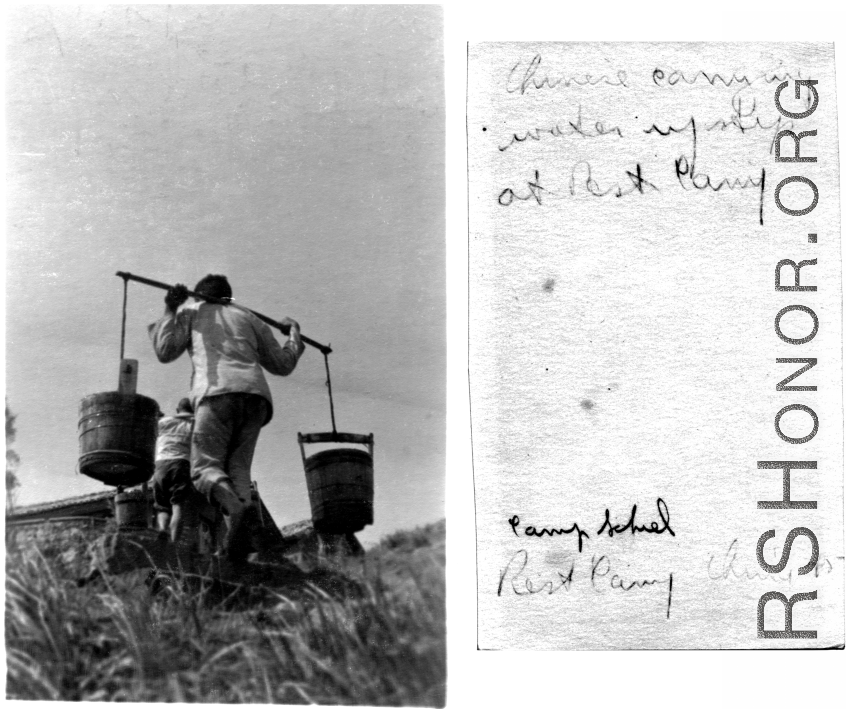 Chinese carrying
water up step
at Rest Camp
Camp Schiel
Rest Camp China 45
RSHONOR.ORG